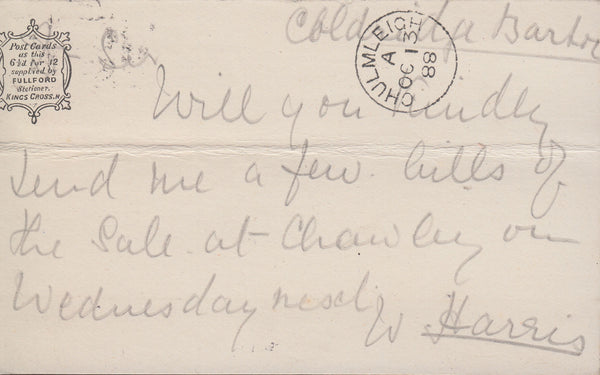 Post Cards
as this
6½d Per 12
supplied by
FULLFORD
Stationer.
KINGS CROSS. N
CHULMLEIGH
A
OC 13
88
Coldridge Barton
Sir
Will you kindly
send me a few bills of
the Sale at Chawley on
Wednesday next
W Harris